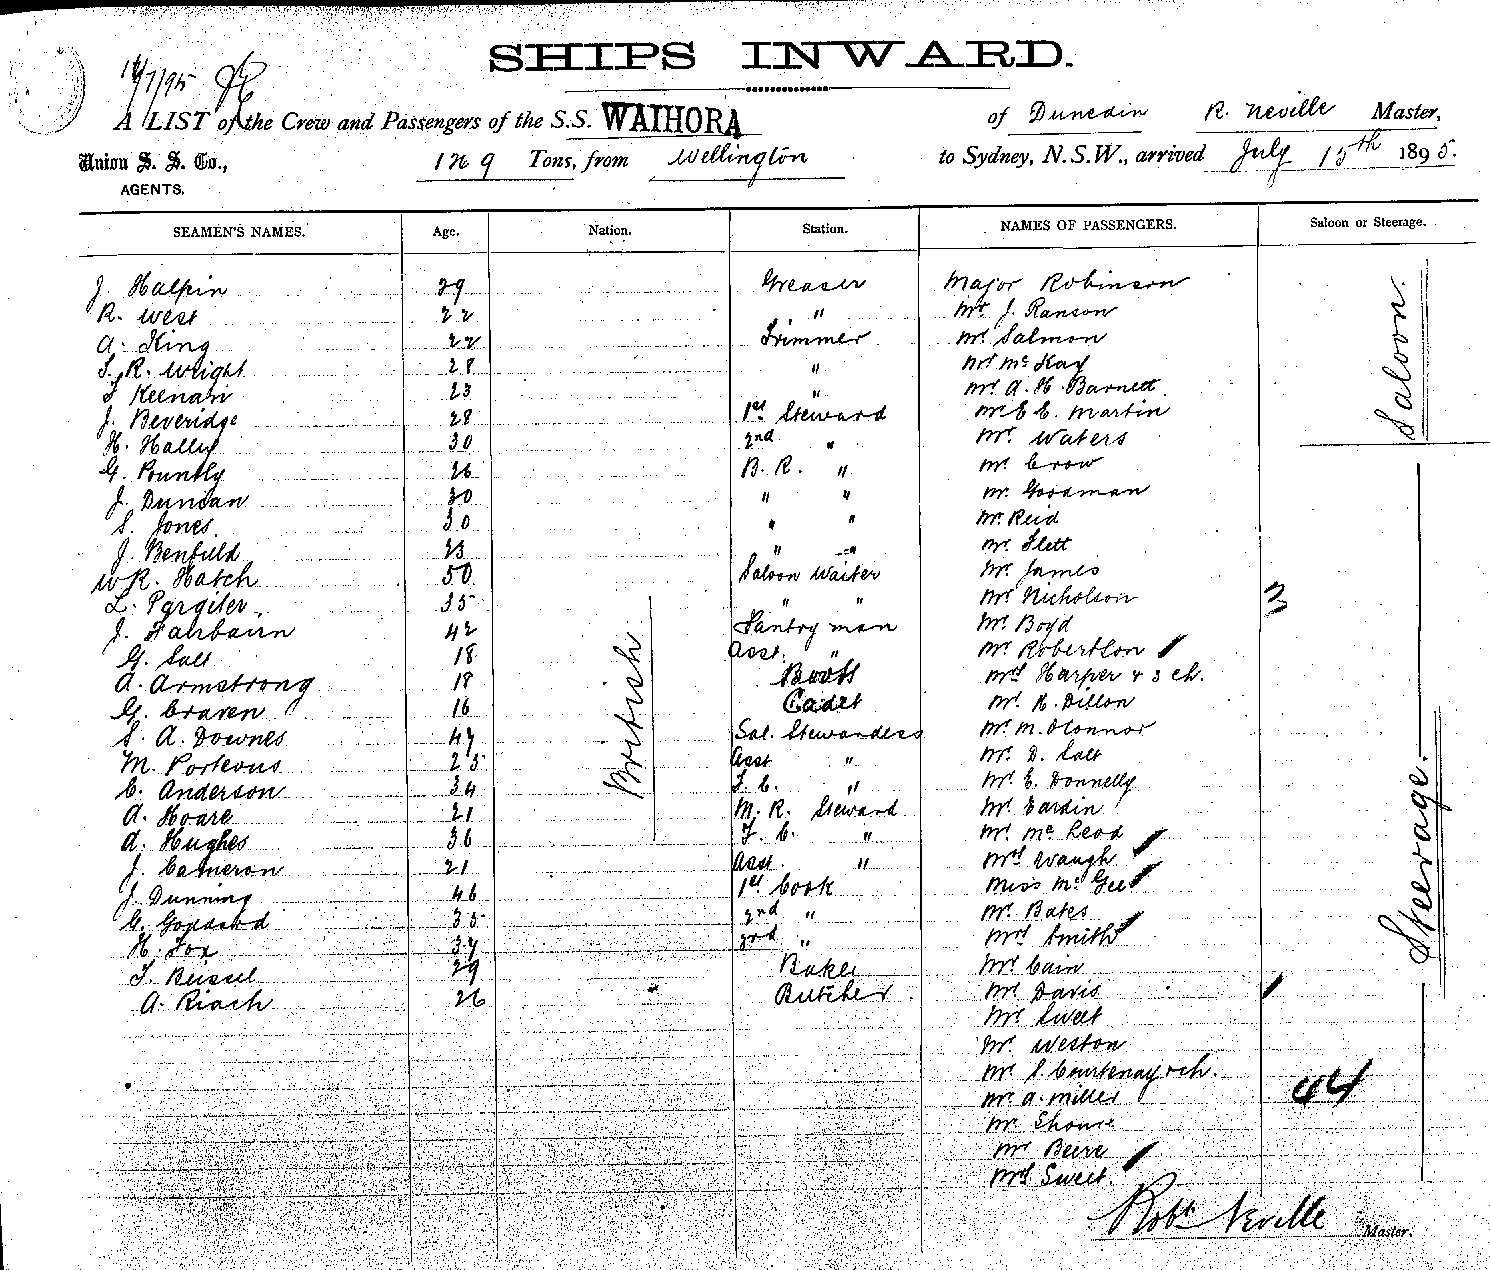 SHIPS INWARD.
A LIST of the Crew and Passengers of the S.S. WAIHORA of Dunedin R. Neville Master,
Union S. S. Co., 1269 Tons, from Wellington to Sydney, N.S.W., arrived July 15th 1895.
AGENTS.
SEAMEN'S NAMES. Age. Nation. Station. NAMES OF PASSENGERS. Saloon or Steerage.
J. Halpin 29 Greaser Major Robinson
R. West 22 " Mr J. Ranson
A. King 22 Trimmer Mr Salmon
R. Wright 28 " Mr McKay
Keenan 23 " Mr A. H. Barnett
J. Beveridge 28 1st Steward Mr E C. Martin
Saloon.
H. Hally 30 2nd " Mr Waters
G. Pountly 26 B. R. " Mr Crow
J. Duncan 30 " " Mr Goodman
S. Jones 30 " " Mr Reid
J. Benfield 23 " " Mr Flett
W R. Hatch 50 Saloon Waiter Mr James
L. Pargiter 35 " " Mr Nicholson 3
J. Fairbairn 42 Pantry man Mr Boyd
G. Salt 18 Asst. " Mr Robertson
A. Armstrong 18 Boots Mrs Harper & 3 ch.
G. Craven 16 Cadet Mr R. Dillon
British
S. A. Downes 47 Sal. Stewardess Mr M. O'Connor
M. Porteous 25 Asst " Mr D. Salt
C. Anderson 34 F. C. " Mr E. Donnelly
A. Hoare 21 M. R. Steward Mr Eardin
A. Hughes 36 F. C. " Mr McLeod
J. Cameron 21 Asst. " Mrs Waugh
J. Dunning 46 1st Cook Miss McGee
Steerage.
G. Goddard 35 2nd " Mr Bates
H. Fox 37 3rd " Mrs Smith
Beissel 29 Baker Mr Cain
A. Riach 26 Butcher Mr Davis
Mr Sweet
Mr Weston
Mr S. Courtenay & ch.
Mr A. Miller 44
Mr
Mr Beire
Mrs Sweet
Robt Neville Master.